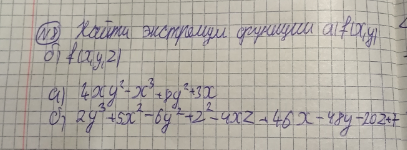 №8 Найти экстремум функции а) f(x,y)
б) f(x,y,z)
а) 4xy² - x³ + 6y² + 3x
б) 2y³ + 5x² - 6y² + z² - 4xz + 46x - 48y - 20z + 7